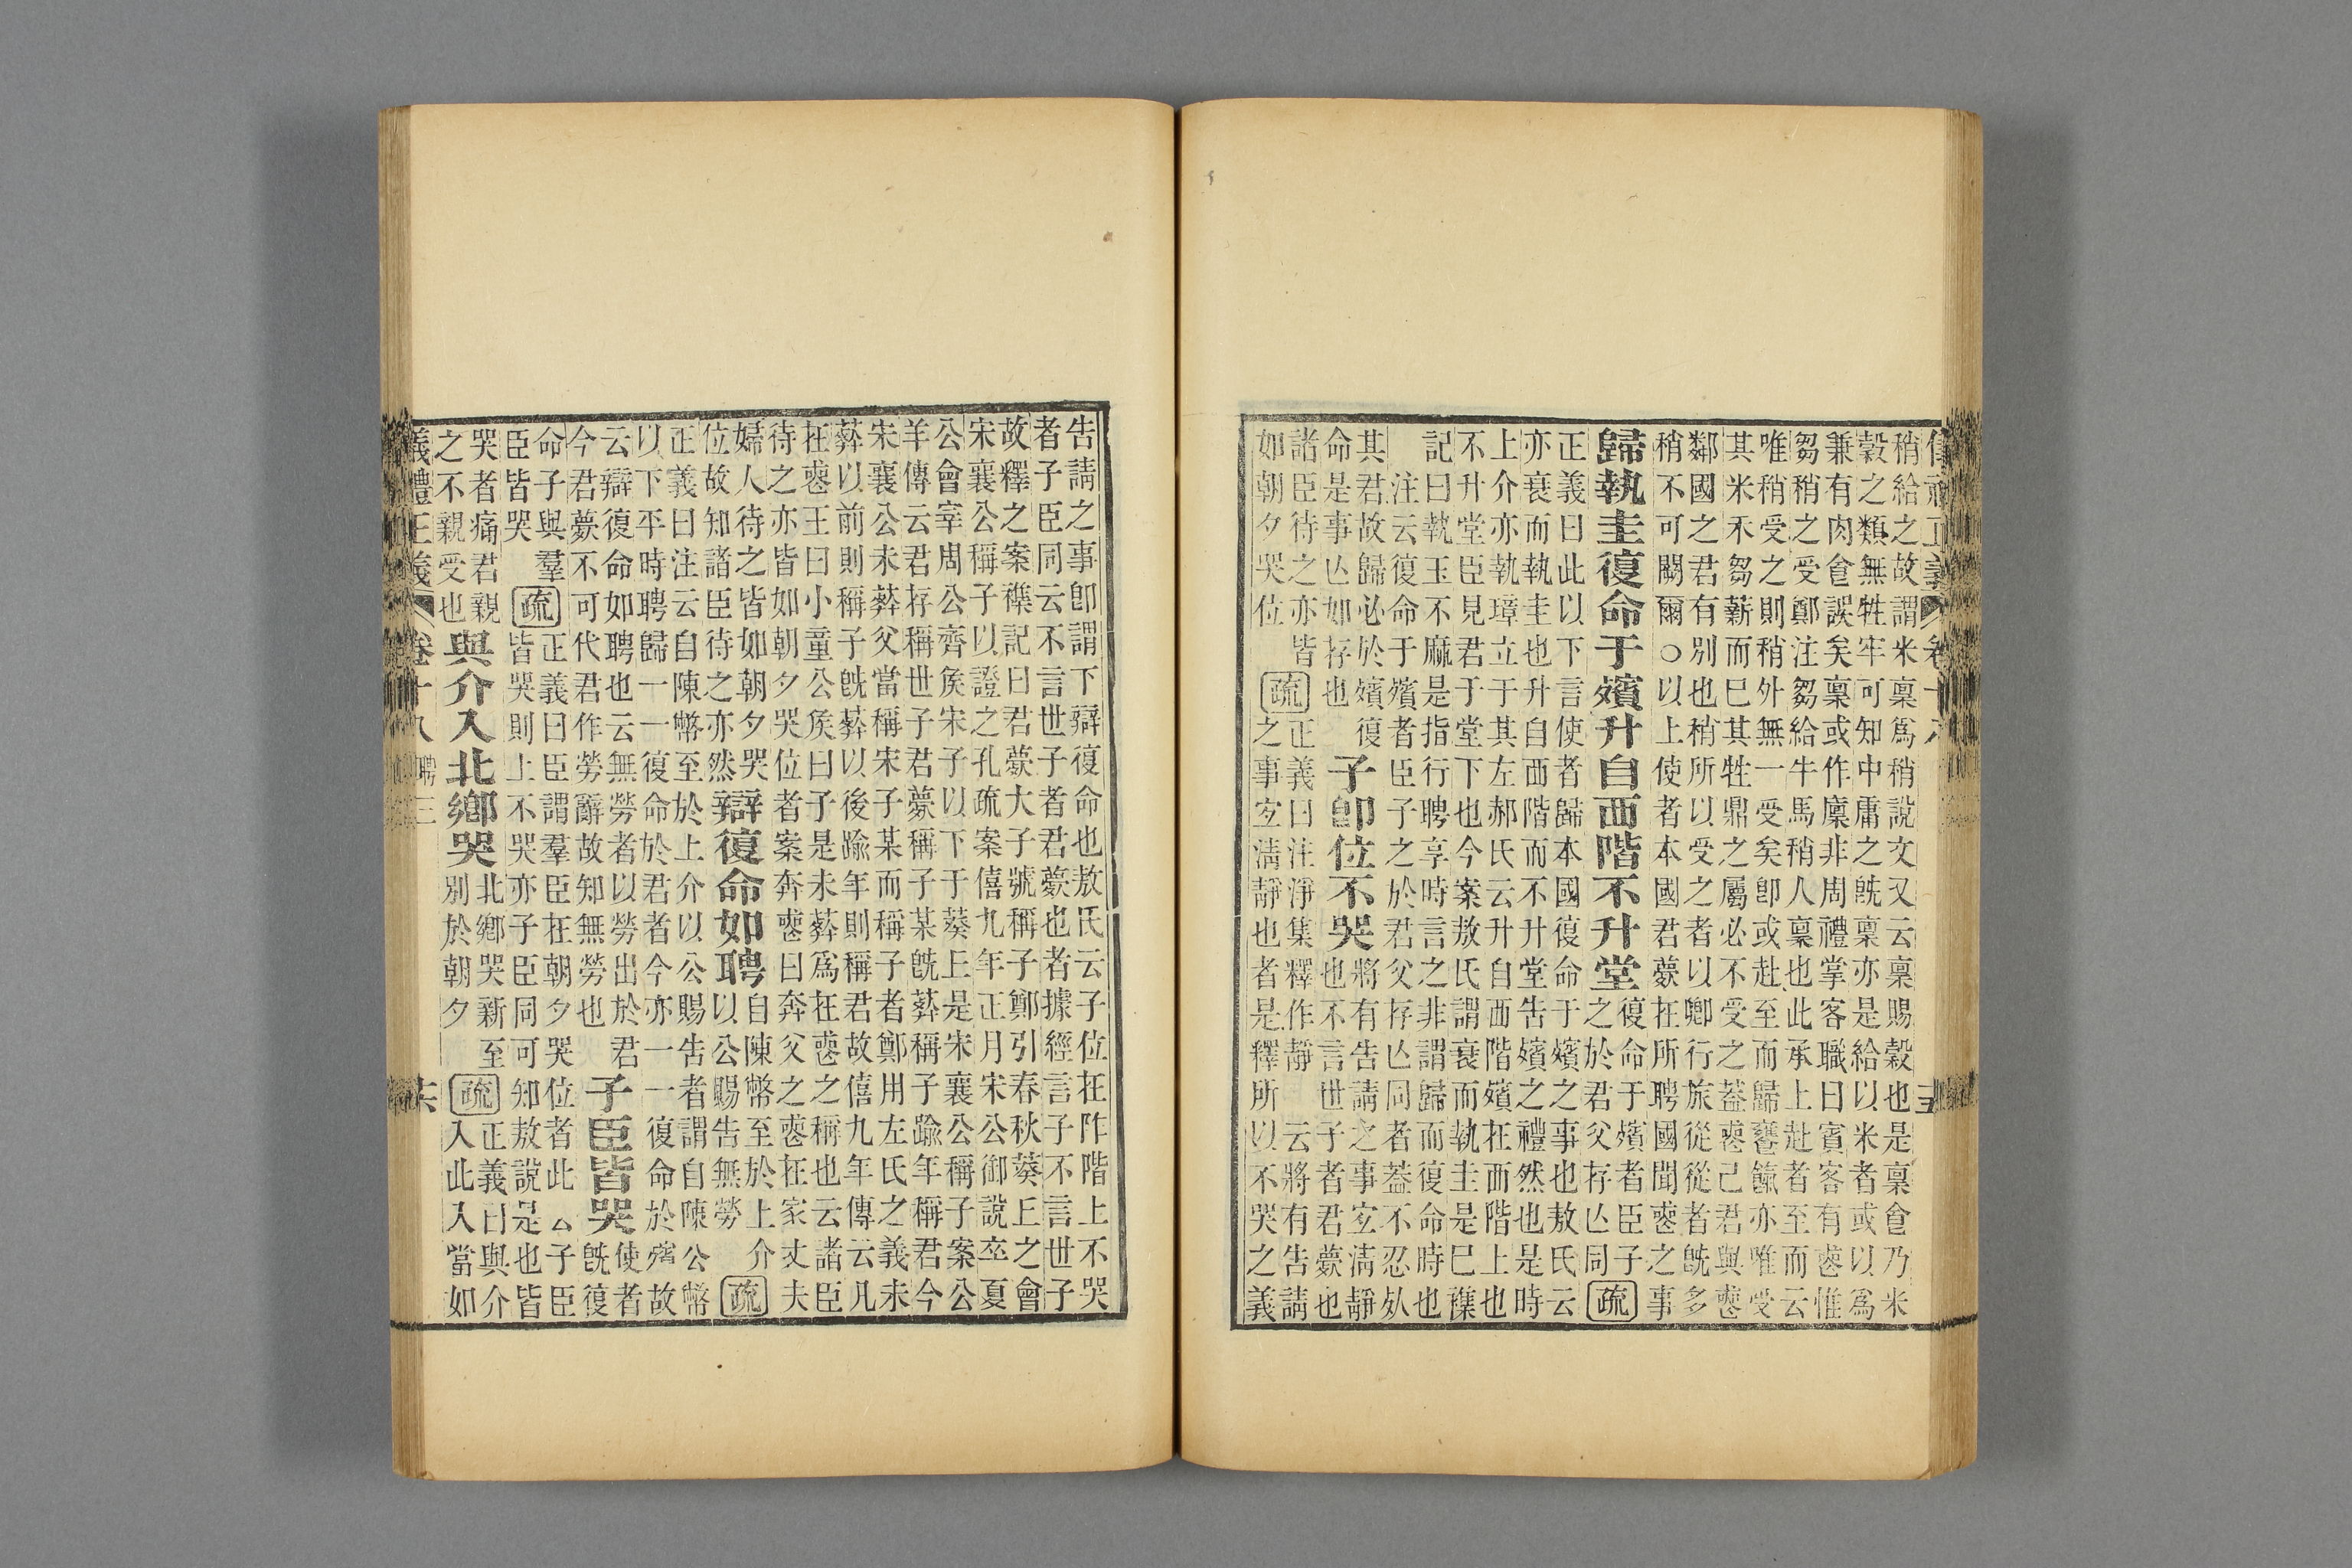 稍給之故謂米稟爲稍說文又云稟賜穀也是稟食乃米
穀之類無牲牢可知中庸之旣稟亦是給以米者或以爲
兼有肉食誤矣稟或作廩非周禮掌客職曰賓客有喪惟
芻稍之受鄭注芻給牛馬稍人稟也此承上赴者至而云
唯稍受之則稍外無一受矣卽或赴至而歸饔餼亦唯受
其米禾芻薪而已其牲鼎之屬必不受之蓋喪己君與喪
鄰國之君有別也稍所以受之者以卿行旅從從者旣多
稍不可闕爾○以上使者本國君薨在所聘國聞喪之事
歸執圭復命于殯升自西階不升堂
復命于殯者臣子
之於君父存亡同
疏
正義曰此以下言使者歸本國復命于殯之事也敖氏云
亦衰而執圭也升自西階而不升堂告殯之禮然也是時
上介亦執璋立于其左郝氏云升自西階殯在西階上也
不升堂臣見君于堂下也今案敖氏謂衰而執圭是已襍
記曰執玉不麻是指行聘享時言之非謂歸而復命時也
注云復命于殯者臣子之於君父存亡同者蓋不忍死
其君故歸必於殯復
命是事亡如存也
子卽位不哭
將有告請之事宜淸靜
也不言世子者君薨也
諸臣待之亦皆
如朝夕哭位
疏
正義曰注淨集釋作靜云將有告請
之事宜淸靜也者是釋所以不哭之義
告請之事卽謂下辯復命也敖氏云子位在阼階上不哭
者子臣同云不言世子者君薨也者據經言子不言世子
故釋之案襍記曰君薨大子號稱子鄭引春秋葵丘之會
宋襄公稱子以證之孔疏案僖九年正月宋公御說卒夏
公會宰周公齊侯宋子以下于葵丘是宋襄公稱子案公
羊傳云君存稱世子君薨稱子某旣葬稱子踰年稱君今
宋襄公未葬父當稱宋子某而稱子者鄭用左氏之義未
葬以前則稱子旣葬以後踰年則稱君故僖九年傳云凡
在喪王曰小童公侯曰子是未葬爲在喪之稱也云諸臣
待之亦皆如朝夕哭位者案奔喪曰奔父之喪在家丈夫
婦人待之皆如朝夕哭
位故知諸臣待之亦然
辯復命如聘
自陳幣至於上介
以公賜告無勞
疏
正義曰注云自陳幣至於上介以公賜告者謂自陳公幣
以下平時聘歸一一復命於君者今亦一一復命於殯故
云辯復命如聘也云無勞者以勞出於君
今君薨不可代君作勞辭故知無勞也
子臣皆哭
使者
旣復
命子與羣
臣皆哭
疏
正義曰臣謂羣臣在朝夕哭位者此云子臣
皆哭則上不哭亦子臣同可知敖說是也皆
哭者痛君親
之不親受也
與介入北鄉哭
北鄉哭新至
別於朝夕
疏
正義曰與介
入此入當如
義禮正義 卷十八 聘三 十六